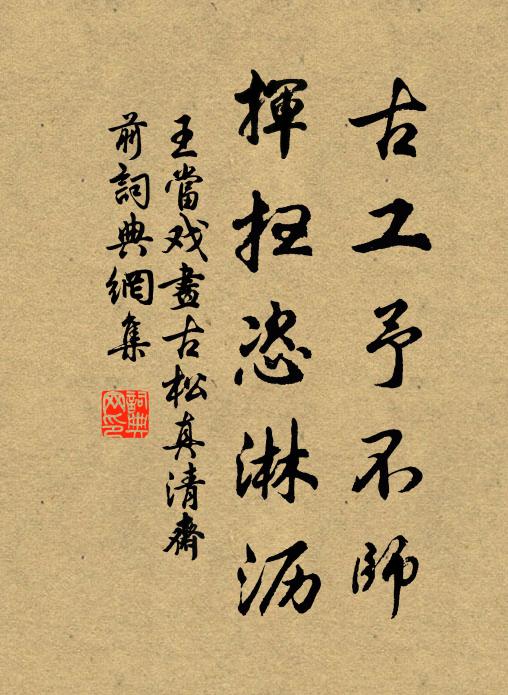 古工予不師
揮扫恣淋沥
王當戏畫古松真清齋
前詞典網集
詞典网印